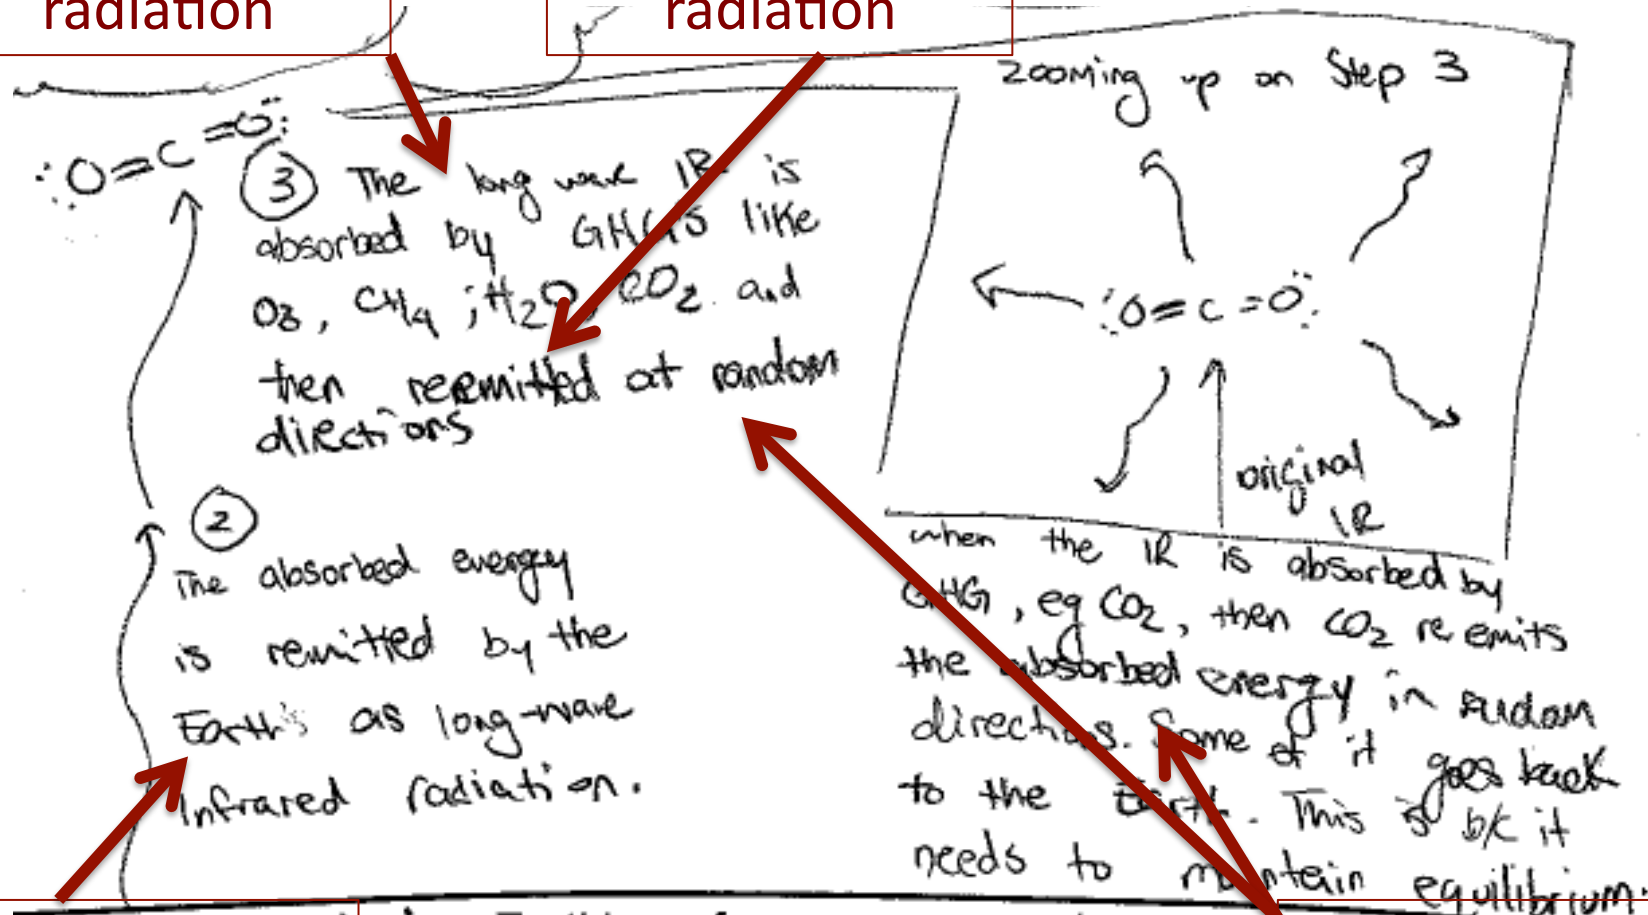 radiation
radiation
zooming up on Step 3
:O=C=O:
③ The long wave IR is
absorbed by GHGs like
O3, CH4 ; H2O, CO2 and
then reemitted at random
directions
:O=C=O:
original
IR
②
The absorbed energy
is remitted by the
Earth's as long-wave
Infrared radiation.
when the IR is absorbed by
GHG, eg CO2, then CO2 re emits
the absorbed energy in random
directions. Some of it goes back
to the Earth. This is b/c it
needs to maintain equilibrium.